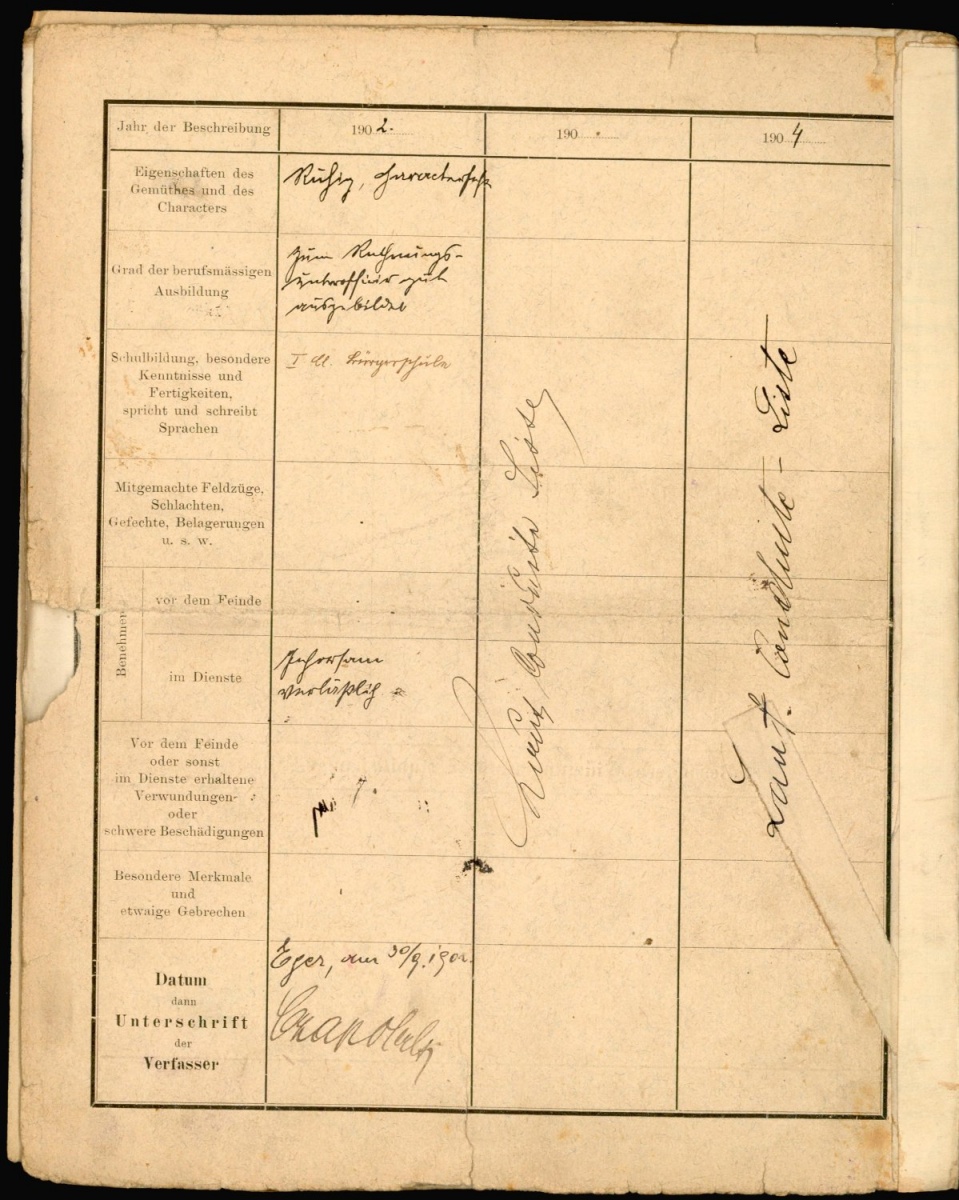 Jahr der Beschreibung
1902.
190
1904
Eigenschaften des
Gemüthes und des
Characters
Ruhig, characterfest
Grad der berufsmässigen
Ausbildung
zum Rechnungs-
unterofficier gut
ausgebildet
Schulbildung, besondere
Kenntnisse und
Fertigkeiten,
spricht und schreibt
Sprachen
I Cl. Bürgerschule
Mitgemachte Feldzüge,
Schlachten,
Gefechte, Belagerungen
u. s. w.
Benehmen
vor dem Feinde
im Dienste
Gehorsam
verläßlich
Vor dem Feinde
oder sonst
im Dienste erhaltene
Verwundungen
oder
schwere Beschädigungen
Besondere Merkmale
und
etwaige Gebrechen
Datum
dann
Unterschrift
der
Verfasser
Eger, am 30/9. 1902.
Conduite Liste
Lauf. Conduite-Liste